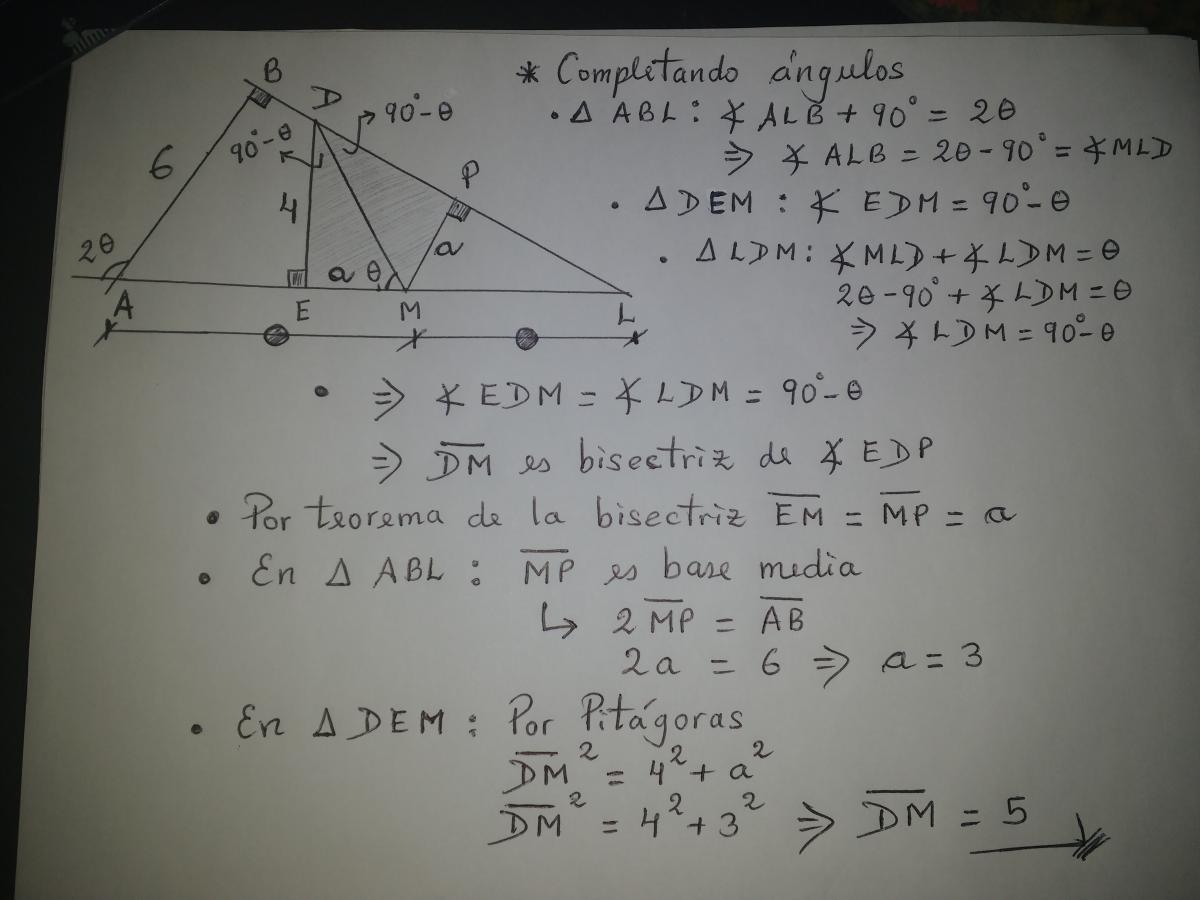 * Completando ángulos
• Δ ABL : ∡ ALB + 90° = 2θ
⇒ ∡ ALB = 2θ - 90° = ∡MLD
• Δ DEM : ∡ EDM = 90° - θ
• Δ LDM : ∡MLD + ∡ LDM = θ
2θ - 90° + ∡ LDM = θ
⇒ ∡ LDM = 90° - θ
B
D
90° - θ
90° - θ
6
P
4
2θ
a
a θ
A
E
M
L
• ⇒ ∡ EDM = ∡ LDM = 90° - θ
⇒ D̅M̅ es bisectriz de ∡ EDP
• Por teorema de la bisectriz E̅M̅ = M̅P̅ = a
• En Δ ABL : M̅P̅ es base media
↳ 2 M̅P̅ = A̅B̅
2a = 6 ⇒ a = 3
• En Δ DEM : Por Pitágoras
D̅M̅² = 4² + a²
D̅M̅² = 4² + 3² ⇒ D̅M̅ = 5